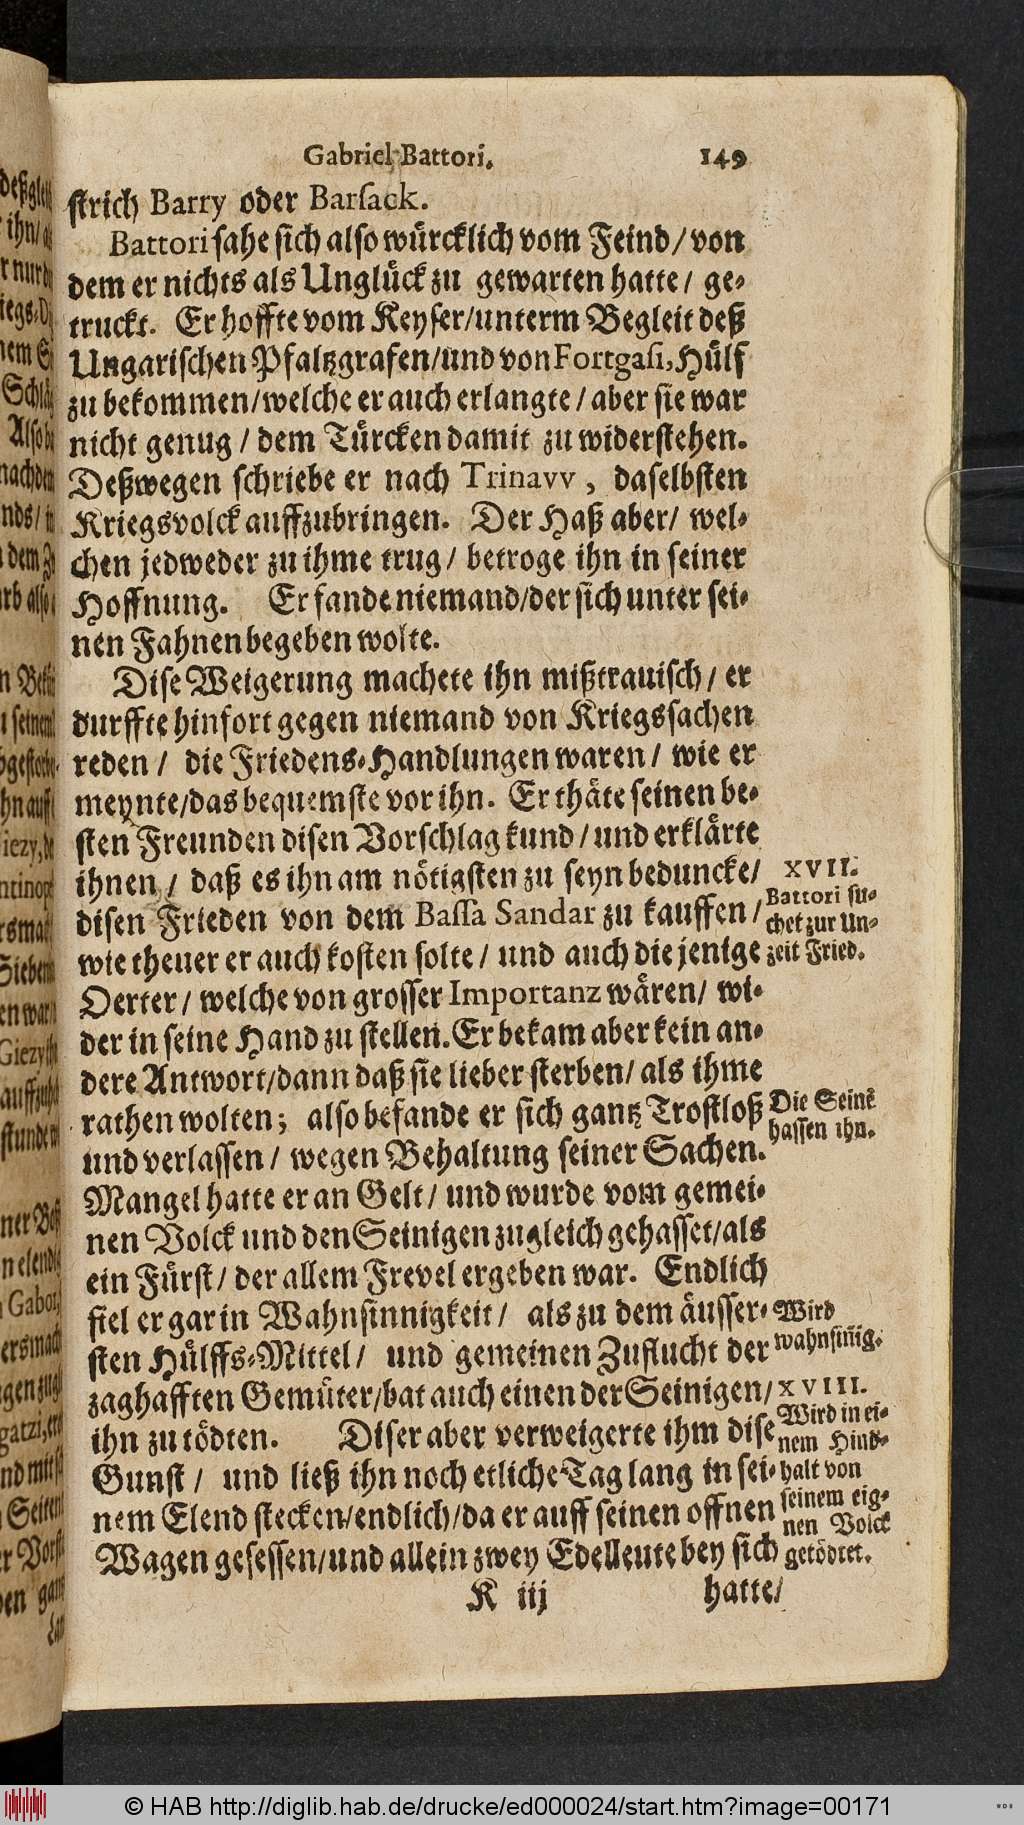 Gabriel Battori. 149
strich Barry oder Barsack.
Battori sahe sich also würcklich vom Feind / von
dem er nichts als Unglück zu gewarten hatte / ge-
truckt. Er hoffte vom Keyser / unterm Begleit deß
Ungarischen Pfaltzgrafen / und von Fortgasi, Hülf
zu bekommen / welche er auch erlangte / aber sie war
nicht genug / dem Türcken damit zu widerstehen.
Deßwegen schriebe er nach Trinavv, daselbsten
Kriegsvolck auffzubringen. Der Haß aber / wel-
chen jedweder zu ihme trug / betroge ihn in seiner
Hoffnung. Er fande niemand / der sich unter sei-
nen Fahnen begeben wolte.
Dise Weigerung machete ihn mißtrauisch / er
durffte hinfort gegen niemand von Kriegssachen
reden / die Friedens-Handlungen waren / wie er
meynte / das bequemste vor ihn. Er thäte seinen be-
sten Freunden disen Vorschlag kund / und erklärte
ihnen / daß es ihn am nötigsten zu seyn beduncke /
disen Frieden von dem Bassa Sandar zu kauffen /
wie theuer er auch kosten solte / und auch die jenige
Oerter / welche von grosser Importanz wären / wi-
der in seine Hand zu stellen. Er bekam aber kein an-
dere Antwort / dann daß sie lieber sterben / als ihme
rathen wolten; also befande er sich gantz Trostloß
und verlassen / wegen Behaltung seiner Sachen.
Mangel hatte er an Gelt / und wurde vom gemei-
nen Volck und den Seinigen zugleich gehasset / als
ein Fürst / der allem Frevel ergeben war. Endlich
fiel er gar in Wahnsinnigkeit / als zu dem äusser-
sten Hülffs-Mittel / und gemeinen Zuflucht der
zaghafften Gemüter / bat auch einen der Seinigen /
ihn zu tödten. Diser aber verweigerte ihm dise
Gunst / und ließ ihn noch etliche Tag lang in sei-
nem Elend stecken / endlich / da er auff seinen offnen
Wagen gesessen / und allein zwey Edelleute bey sich
K iij hatte /
XVII.
Battori su-
chet zur Un-
zeit Fried.
Die Seinē
hassen ihn.
Wird
wahnsiñig.
XVIII.
Wird in ei-
nem Hind-
halt von
seinem eig-
nen Volck
getödtet.
© HAB http://diglib.hab.de/drucke/ed000024/start.htm?image=00171